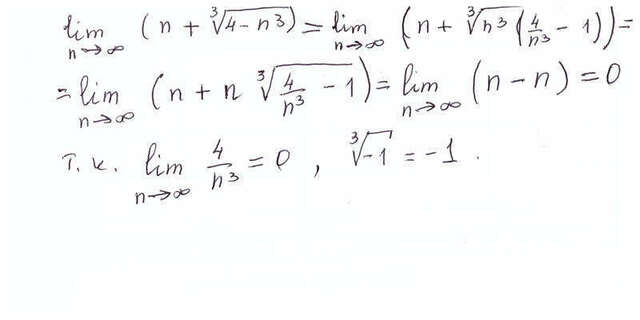 lim n→∞ (n + ∛(4 - n³)) = lim n→∞ (n + ∛(n³(4/n³ - 1))) =
= lim n→∞ (n + n ∛(4/n³ - 1)) = lim n→∞ (n - n) = 0
Т. к. lim n→∞ 4/n³ = 0, ∛-1 = -1.